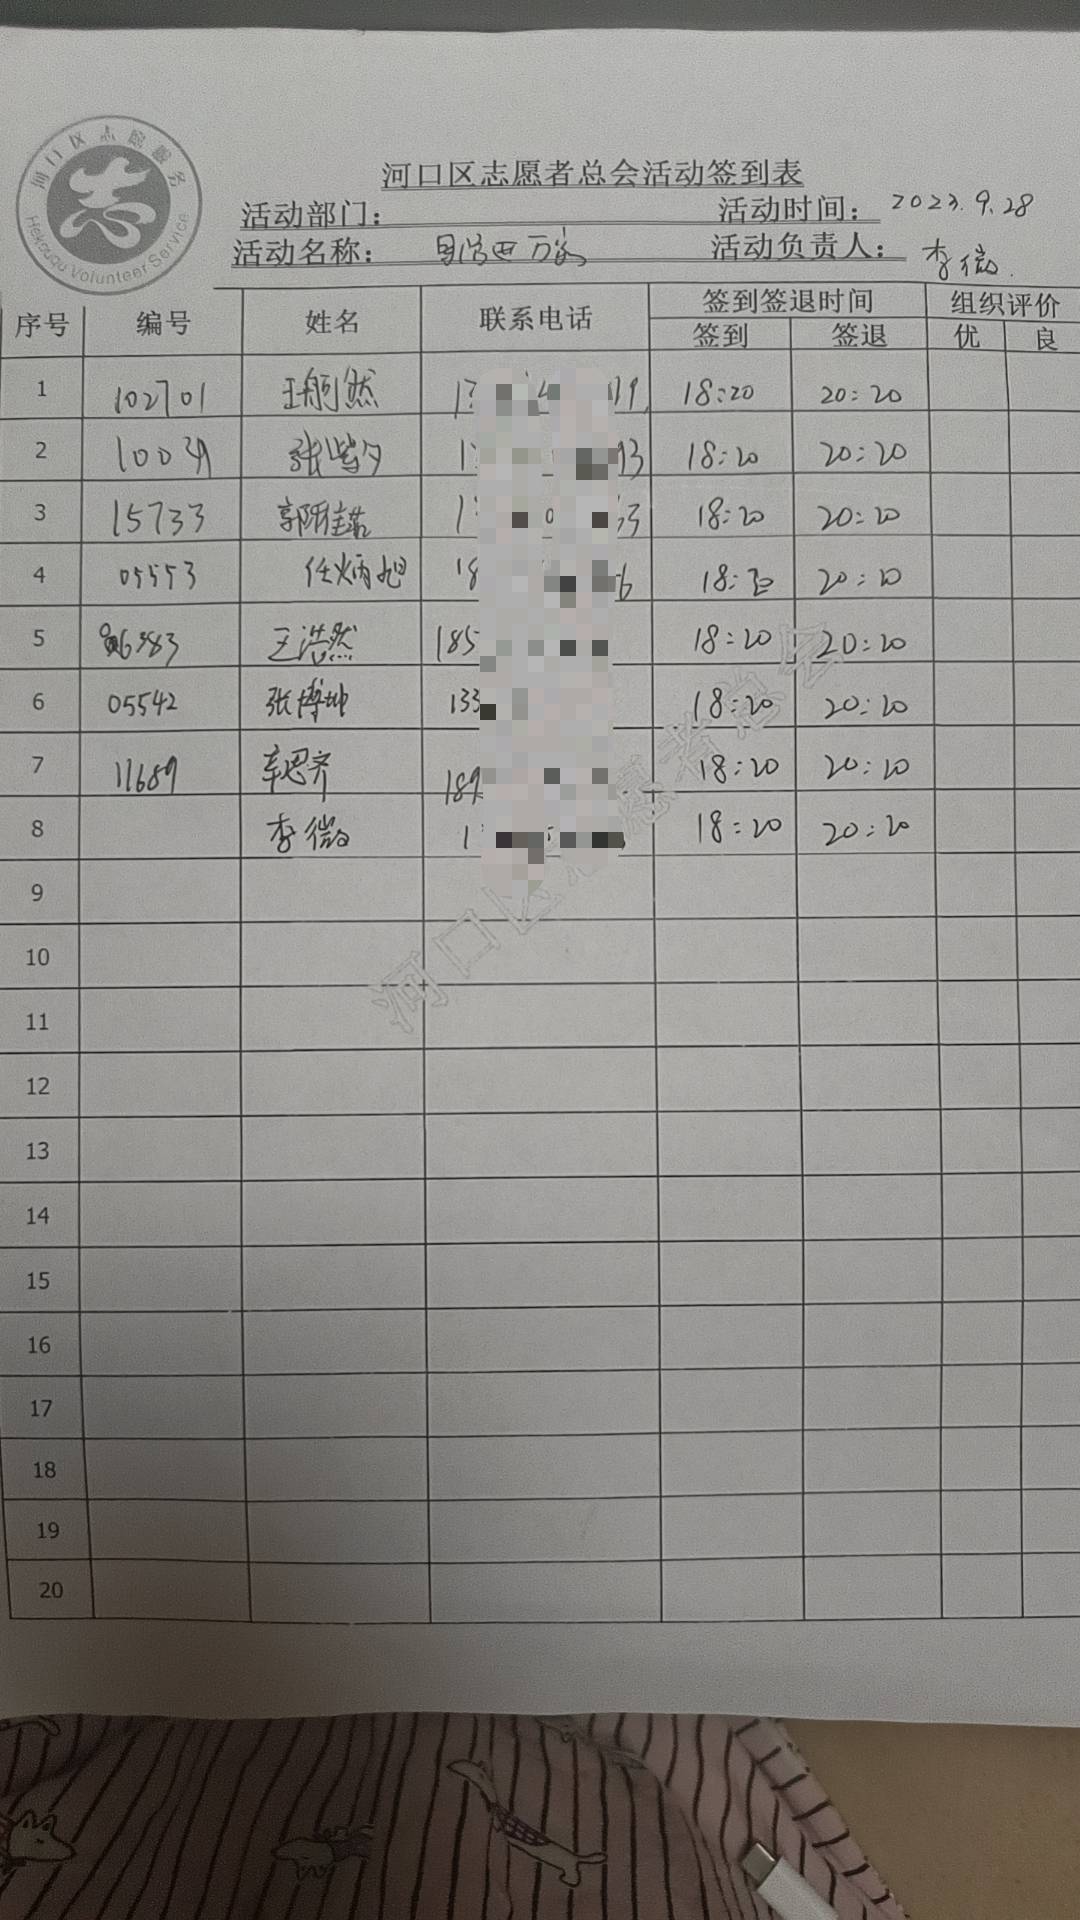 河口区志愿服务
志
Hekouqu Volunteer Service
河口区志愿者总会活动签到表
活动部门： 活动时间： 2023.9.28
活动名称： 活动负责人： 李微
序号 编号 姓名 联系电话 签到签退时间 组织评价
签到 签退 优 良
1 102701 王舸然 18:20 20:20
2 张紫夕 18:20 20:20
3 15733 18:20 20:20
4 05553 任炳旭 18:20 20:20
5 王浩然 185 18:20 20:20
6 05542 张博坤 133 18:20 20:20
7 11689 辛思齐 189 18:20 20:20
8 李微 18:20 20:20
9
10
11
12
13
14
15
16
17
18
19
20
河口区志愿者总会